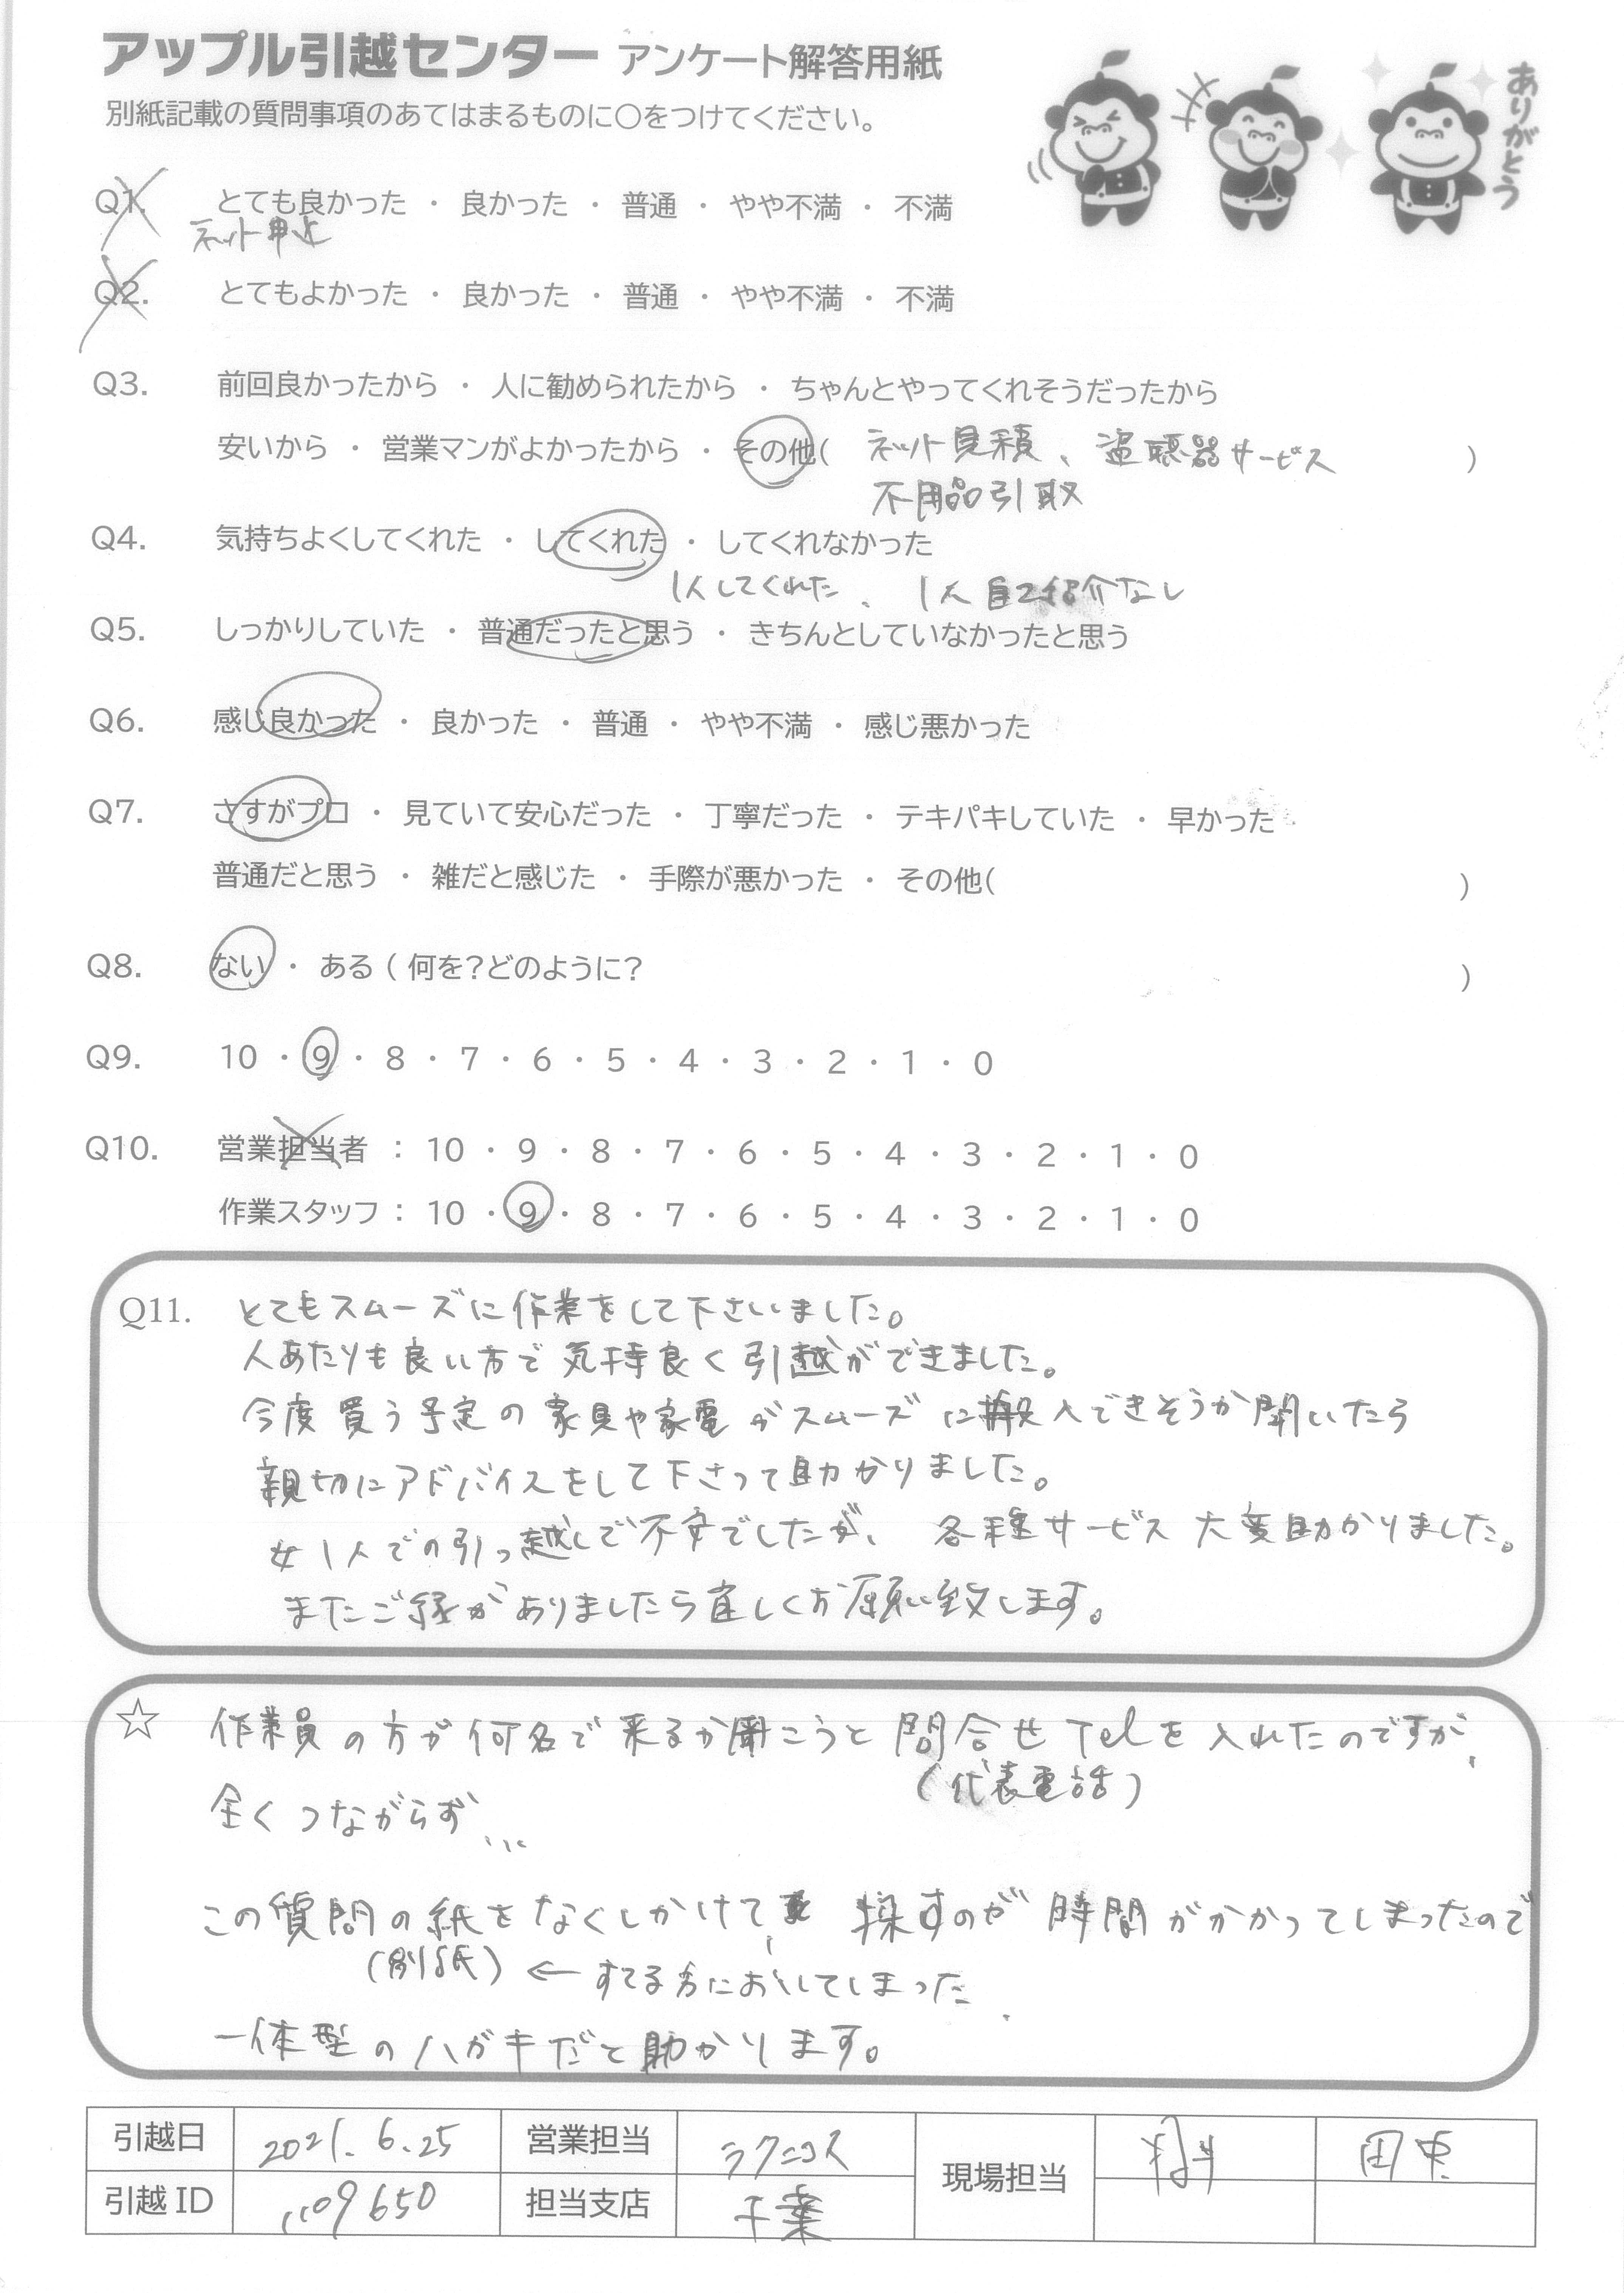 アップル引越センター アンケート解答用紙
別紙記載の質問事項のあてはまるものに○をつけてください。
ありがとう
Q1. とても良かった ・ 良かった ・ 普通 ・ やや不満 ・ 不満
ネット申込
Q2. とてもよかった ・ 良かった ・ 普通 ・ やや不満 ・ 不満
Q3. 前回良かったから ・ 人に勧められたから ・ ちゃんとやってくれそうだったから
安いから ・ 営業マンがよかったから ・ その他( ネット見積、盗聴器サービス )
不用品引取
Q4. 気持ちよくしてくれた ・ してくれた ・ してくれなかった
1人してくれた、1人自己紹介なし
Q5. しっかりしていた ・ 普通だったと思う ・ きちんとしていなかったと思う
Q6. 感じ良かった ・ 良かった ・ 普通 ・ やや不満 ・ 感じ悪かった
Q7. さすがプロ ・ 見ていて安心だった ・ 丁寧だった ・ テキパキしていた ・ 早かった
普通だと思う ・ 雑だと感じた ・ 手際が悪かった ・ その他( )
Q8. ない ・ ある ( 何を?どのように? )
Q9. 10 ・ 9 ・ 8 ・ 7 ・ 6 ・ 5 ・ 4 ・ 3 ・ 2 ・ 1 ・ 0
Q10. 営業担当者 : 10 ・ 9 ・ 8 ・ 7 ・ 6 ・ 5 ・ 4 ・ 3 ・ 2 ・ 1 ・ 0
作業スタッフ : 10 ・ 9 ・ 8 ・ 7 ・ 6 ・ 5 ・ 4 ・ 3 ・ 2 ・ 1 ・ 0
Q11. とてもスムーズに作業をして下さいました。
人あたりも良い方で気持良く引越ができました。
今度買う予定の家具や家電がスムーズに搬入できそうか聞いたら
親切にアドバイスをして下さって助かりました。
女1人での引っ越しで不安でしたが、各種サービス大変助かりました。
またご縁がありましたら宜しくお願い致します。
☆ 作業員の方が何名で来るか聞こうと問合せTelを入れたのですが、
(代表電話)
全くつながらず...
この質問の紙をなくしかけて、探すのが時間がかかってしまったので
(別紙) ← すてる方においてしまった
一体型のハガキだと助かります。
引越日 2021.6.25 営業担当 ラクニコス 現場担当 田中
引越ID 1109650 担当支店 千葉